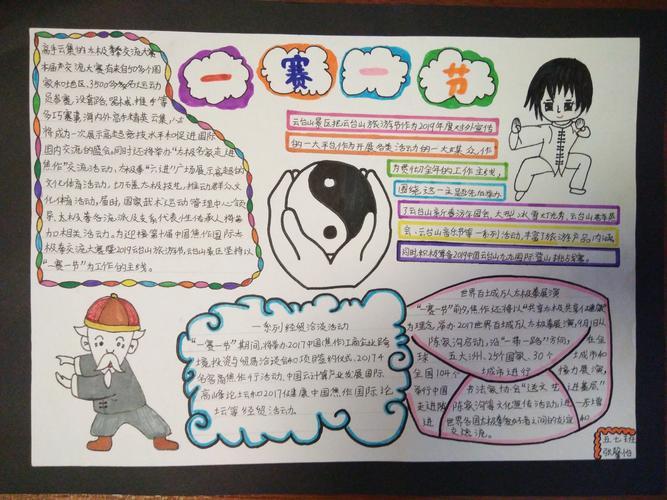 一赛一节
高手云集的太极拳交流大赛
本届交流大赛有来自50多个国
家和地区,3500多名运动
员参赛,设套路、
多项赛事,海内外高手精英云集,
将成为一次展示高超竞技水平和促进国际
国内交流的盛会,同时还将举办"太极名家走进
焦作"交流活动,太极拳"六进"广场展示高超的
文化体育活动,
文化体育活动,届时,国家武术运动管理中心领
导、太极拳各流派及支系代表性传承人将参
加相关活动。为迎接第十届中国焦作国际太
极拳交流大赛暨2019云台山旅游节,云台山景区坚持以
"一赛一节"为工作的主线。
云台山景区把云台山旅游节作为2019年度对外宣传
的一大平台作为开展各类活动的一大载体,作
为贯彻全年的工作主线,
围绕这一主题先后举办
了云台山新春游乐园会、大型冰雪灯光秀、云台山
会、云台山音乐节等一系列活动,丰富了旅游产品内涵
同时积极筹备2019中国云台山九九国际登山挑战赛。
一系列经贸洽谈活动
"一赛一节"期间,将举办中国(焦作)工商企业跨
境投资与贸易洽谈会和40项目签约仪式、2017
名家高焦作行活动、中国云计算产业发展国际
高峰论坛和2017健康中国焦作国际论
坛等经贸活动。
世界百城万人太极拳展演
"一赛一节"前夕,焦作还将以"共享太极 共享健康"
为理念,举办2017世界百城万人太极拳展演,9月1日从
陈家沟启动,沿"一带一路"方向,在全
球五大洲、25个国家、30个城市和
全国104个城市进行接力展演,
举行中国书法家协会"送文艺进基层"
走进陈家沟等文化宣传活动,进一步增
进世界各国太极拳爱好者之间的友谊和
交流。
五七班
张馨怡